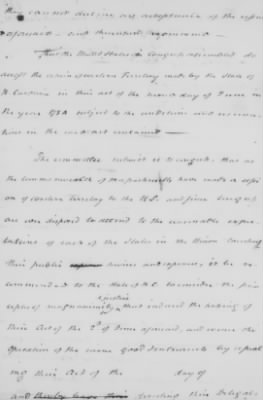 they cannot decline an acceptance of the cession
aforesaid - and thereupon recommend -
That the United States in Congress assembled do
accept the cession of western Territory made by the State of
N. Carolina in their act of the second day of June in
the year 1784 subject to the conditions and reserva-
tions in the said act contained -
The committee submit it to congress, that as
the commonwealth of Massachusetts have made a cession
of western Territory to the U.S. and since Congress
are ever disposed to attend to the reasonable expec-
tations of each of the States in the Union touching
their public and expences, it be re-
commended to the State of N.C. to consider the prin-
ciples of magnanimity & justice that induced the making of
their Act of the 2d of June aforesaid, and revive the
operation of the same good sentiments by repeal-
ing their Act of the day of
and directing their Delegates